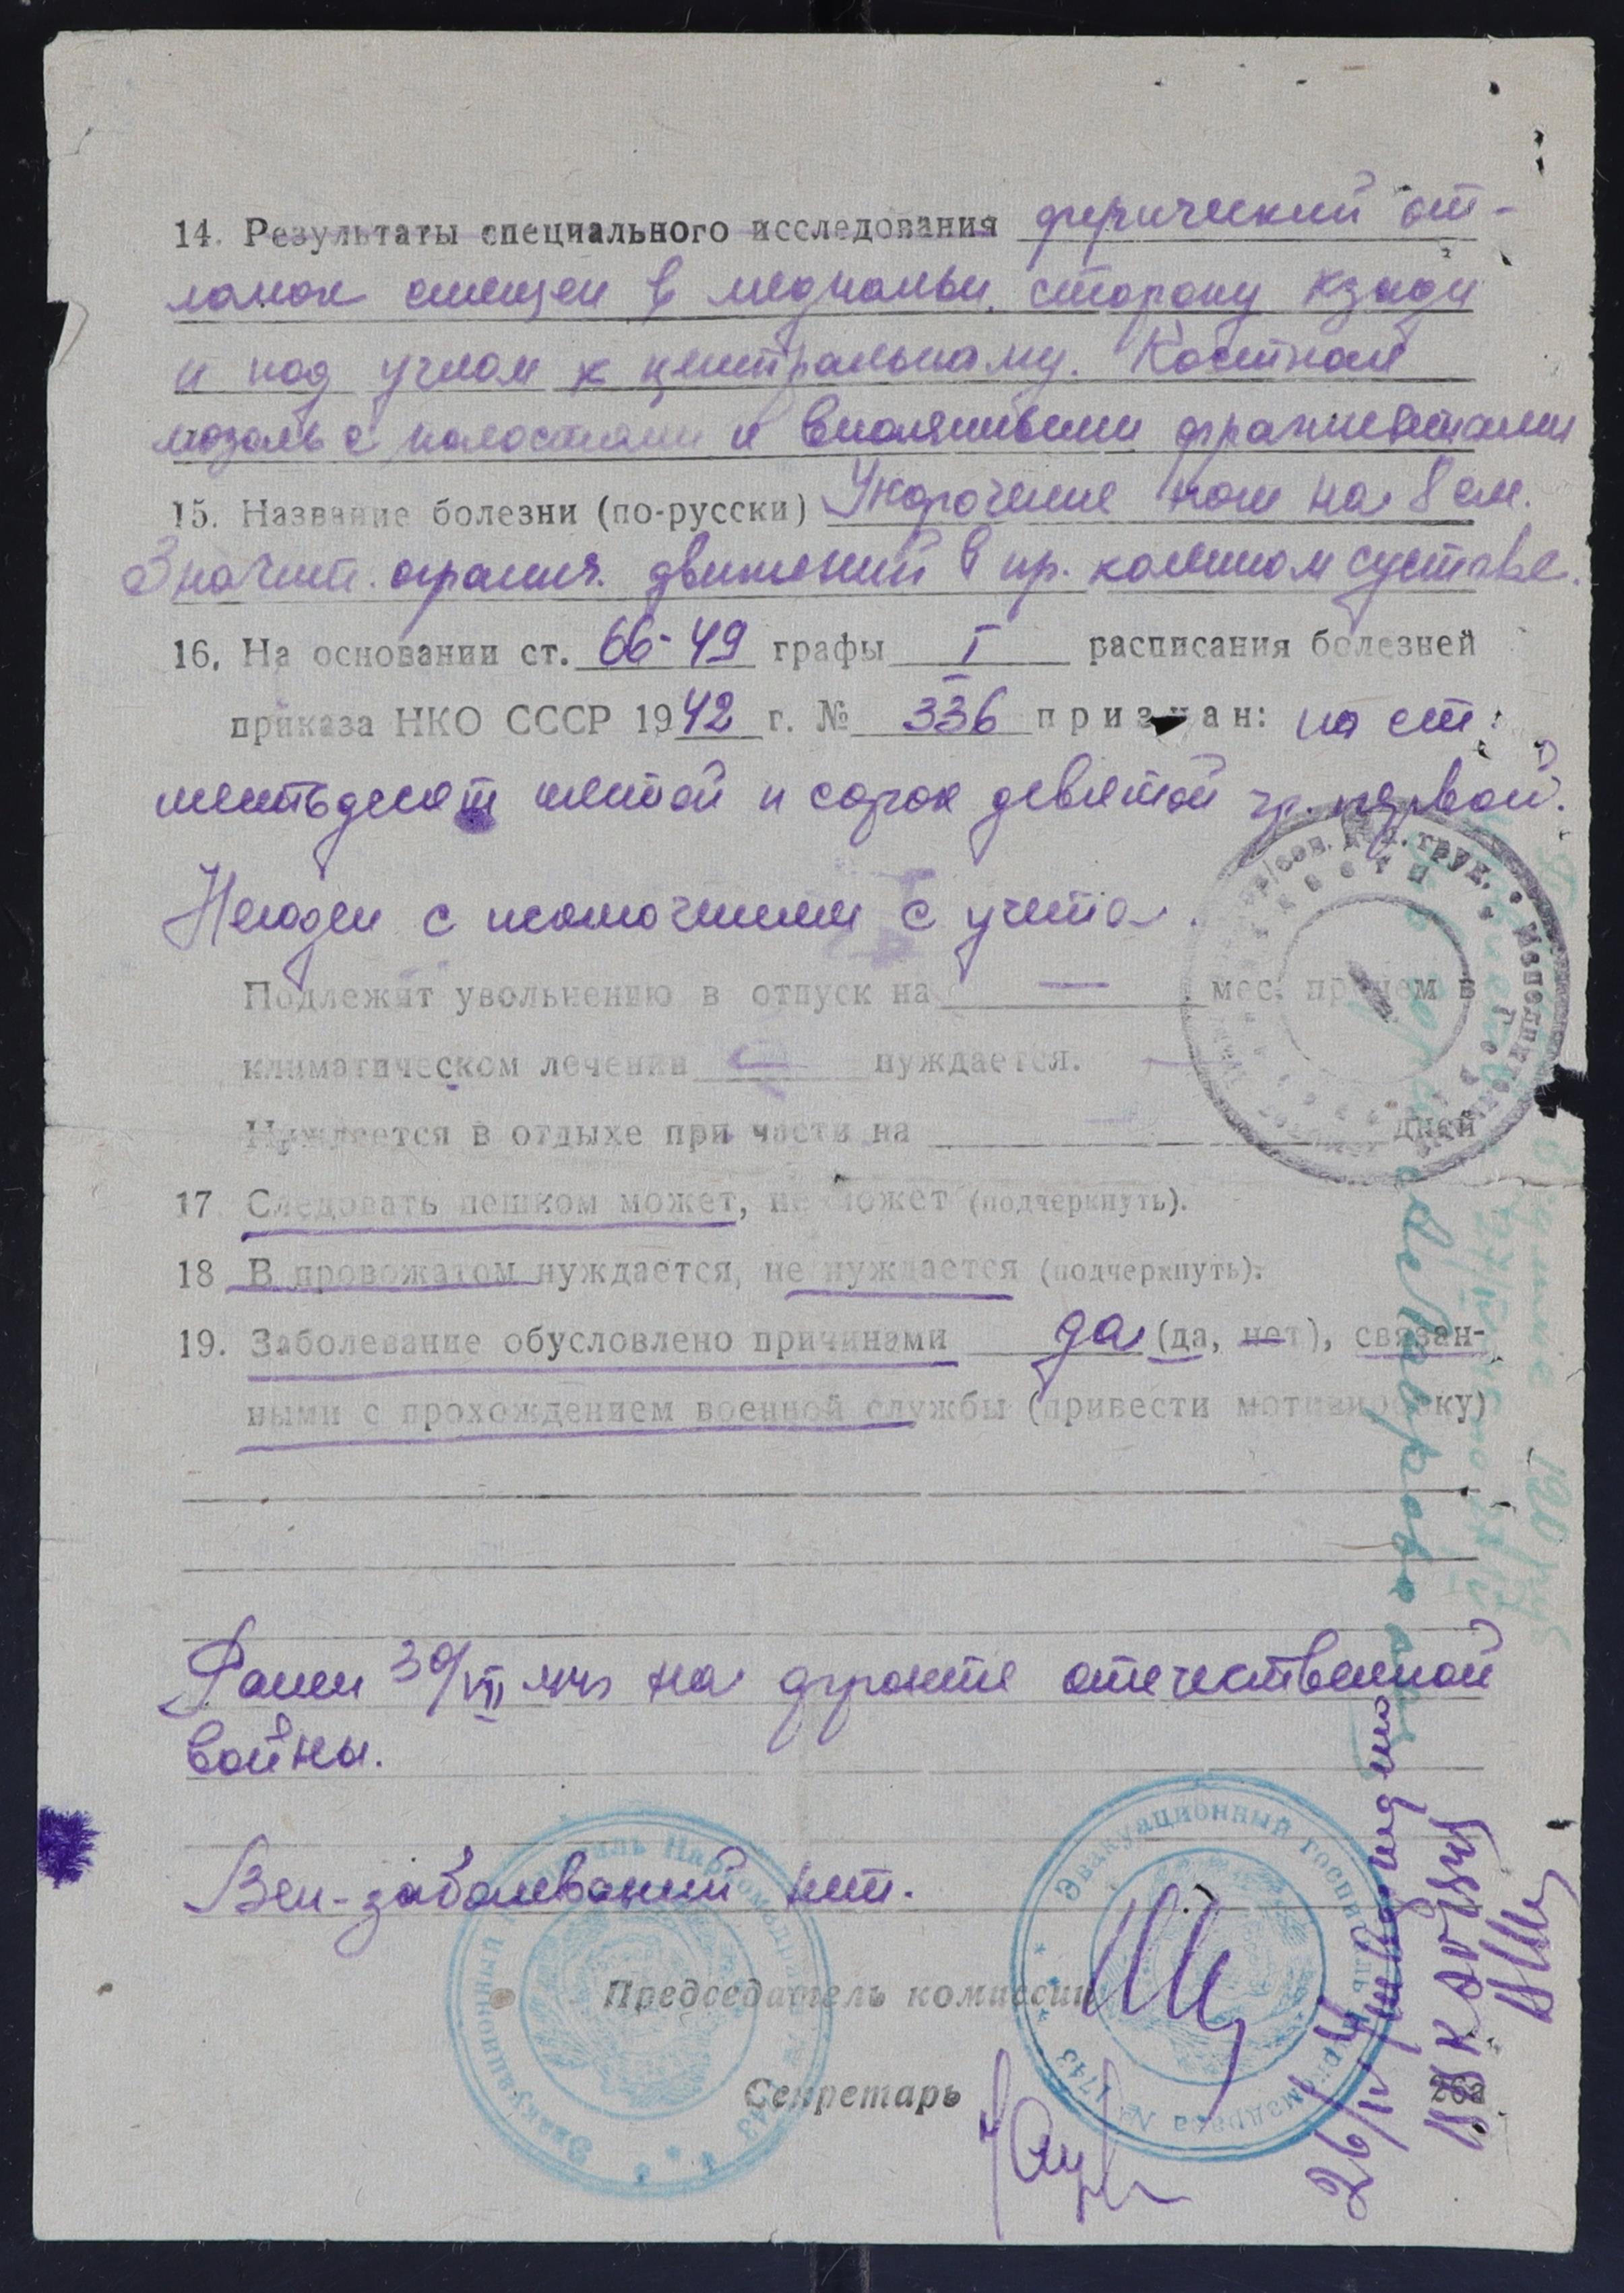 14. Результаты специального исследования ферический от-
ломок смещен в медиальн. сторону кзади
и под углом к центральному. Костная
мозоль с полостями и вколоченными фрагментами
15. Название болезни (по-русски) Укорочение ноги на 8 см.
Значит. огранич. движений в пр. коленном суставе.
16. На основании ст. 66-49 графы I расписания болезней
приказа НКО СССР 1942 г. № 336 признан: по ст.
шестьдесят шестой и сорок девятой гр. первой.
Негоден с исключением с учета.
Подлежит увольнению в отпуск на — мес. причем в
климатическом лечении — нуждается.
Нуждается в отдыхе при части на дней
17 Следовать пешком может, не может (подчеркнуть).
18 В провожатом нуждается, не нуждается (подчеркнуть).
19. Заболевание обусловлено причинами да (да, нет), связан-
ными с прохождением военной службы (привести мотивировку)
Ранен 30/VII 43 на фронте отечественной
войны.
Вен-заболеваний нет.
Председатель комиссии
Секретарь
Эвакуационный госпиталь Наркомздрава № 1743
Эвакуационный госпиталь Наркомздрава № 1743
26/IV